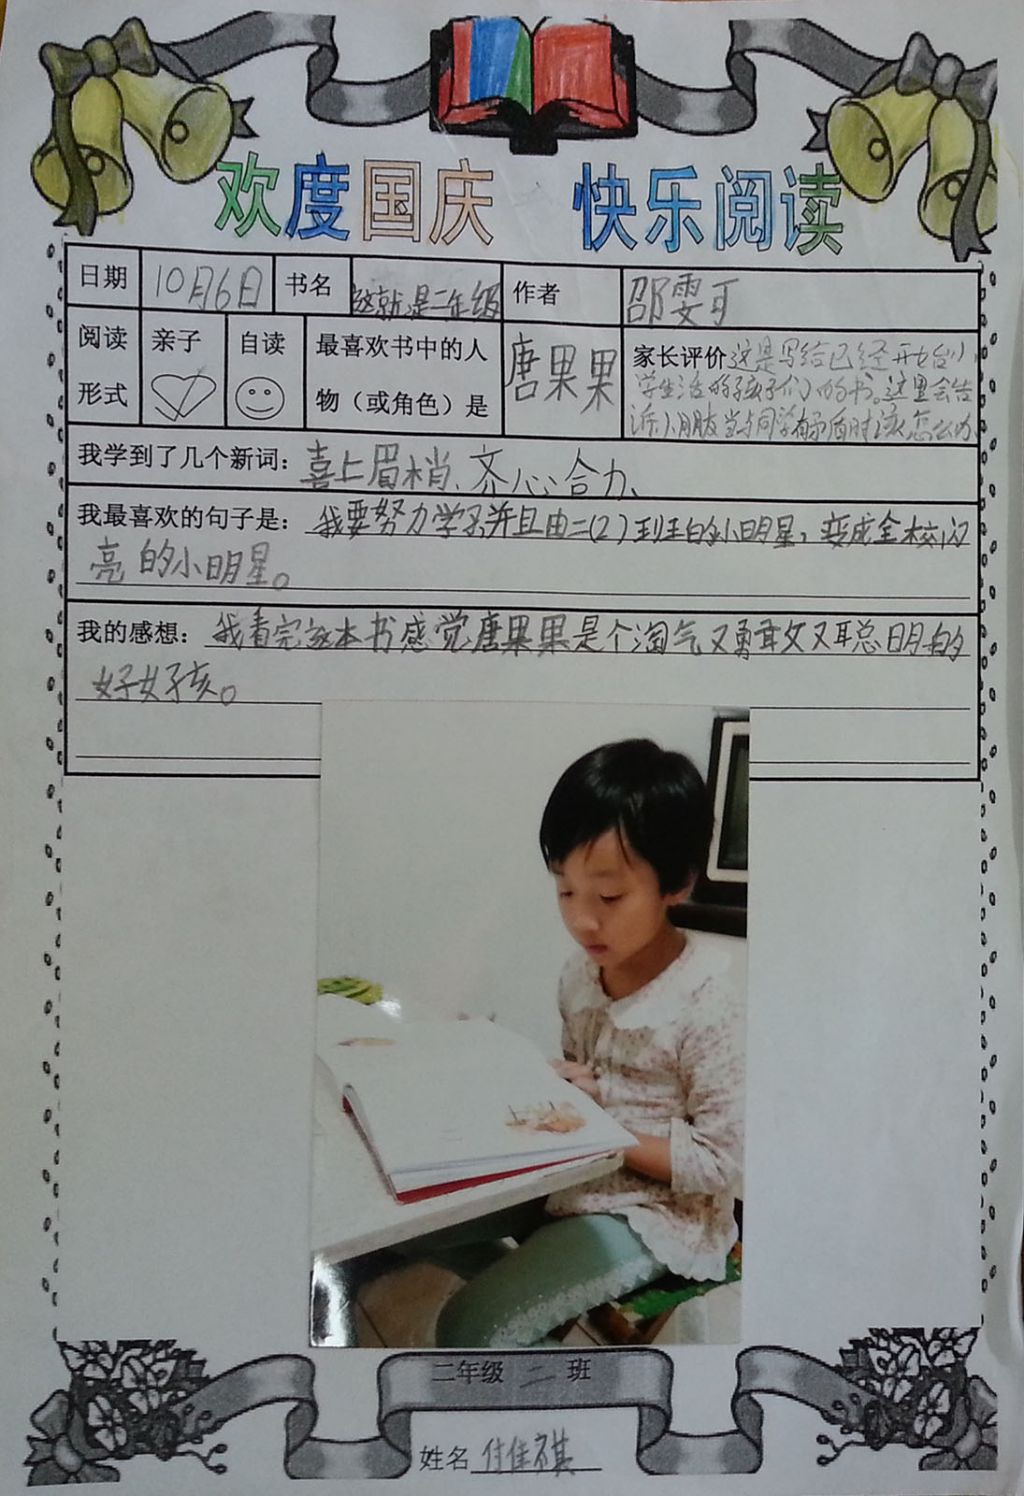 欢度国庆 快乐阅读
日期 10月6日 书名 这就是二年级 作者 邵雯可
阅读形式 亲子 自读 最喜欢书中的人物（或角色）是 唐果果
家长评价 这是写给已经开始小
学生活的孩子们的书。这里会告
诉小朋友当与同学有矛盾时该怎么办
我学到了几个新词：喜上眉梢、齐心合力、
我最喜欢的句子是：我要努力学习并且由二(2)班的小明星，变成全校闪
亮的小明星。
我的感想：我看完这本书感觉唐果果是个淘气又勇敢又聪明的
好女孩。
二年级 二 班
姓名 付佳祺